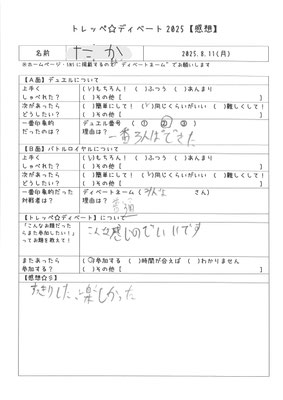 トレッペ☆ディベート2025【感想】
名前 だ.か 2025.8.11(月)
※ホームページ・SNSに掲載するので"ディベートネーム"でお願いします
【A面】デュエルについて
上手くしゃべれた? (レ)もちろん! ( )ふつう ( )あんまり ( )その他[ ]
次があったらどうしたい? ( )簡単にして! (レ)同じくらいがいい ( )難しくして! ( )その他[ ]
一番印象的だったのは? デュエル番号 ( ① ② ③ )
理由は? 一番ろんぱできた
【B面】バトルロイヤルについて
上手くしゃべれた? (レ)もちろん! ( )ふつう ( )あんまり ( )その他[ ]
次があったらどうしたい? ( )簡単にして! (レ)同じくらいがいい ( )難しくして! ( )その他[ ]
一番印象的だった対戦者は? ディベートネーム( みんな さん)
理由は?
【トレッペ☆ディベート】について
「こんなお題だったらまた参加したい!」ってお題を教えて! こんな感じのでいいです
またあったら参加する? (○)参加する ( )時間が合えば ( )わかりません ( )その他[ ]
【感想☆彡】
すっきりした、楽しかった